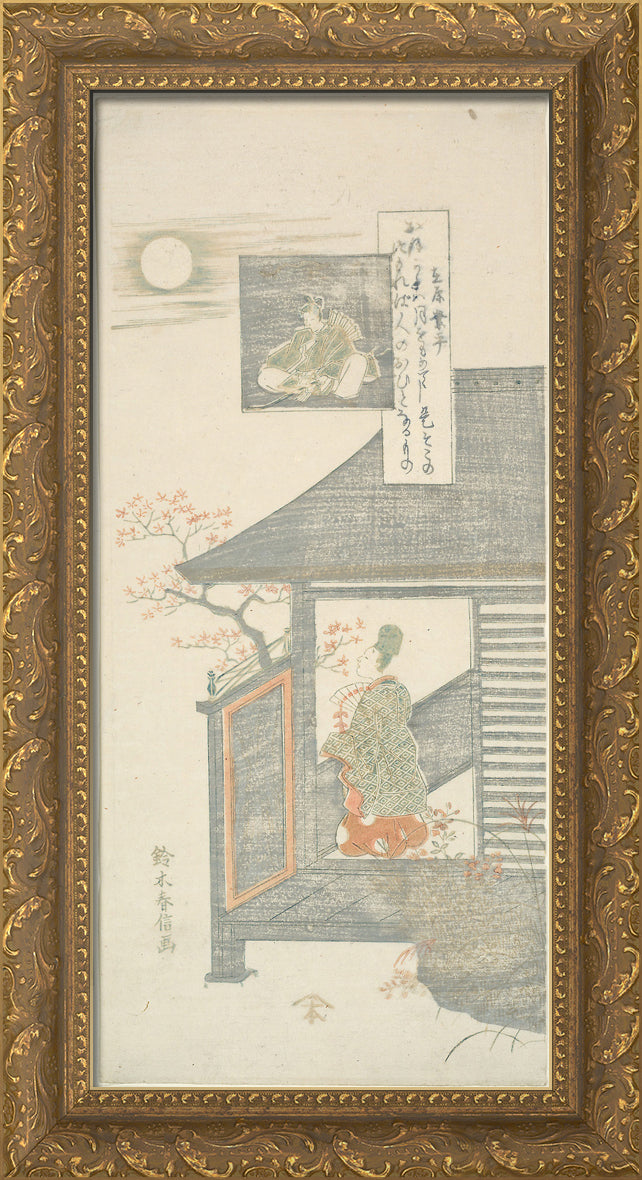 在原業平
おほかたハ月をもめてし
是そこの
つもれは人のおひとなるもの
鈴木春信画